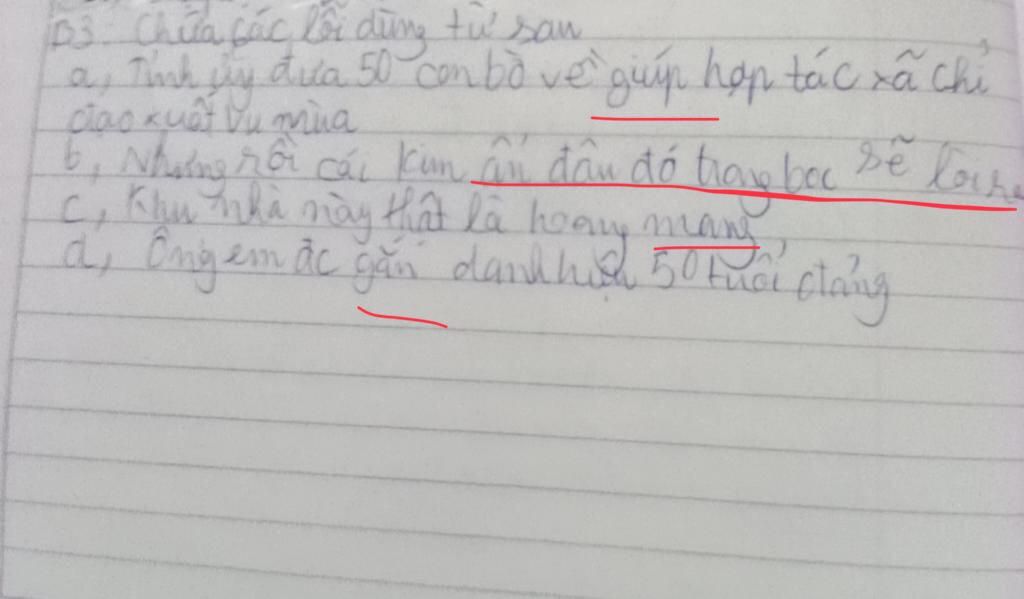 B3. Chữa các lỗi dùng từ sau
a, Tỉnh ủy đưa 50 con bò về giúp hợp tác xã chỉ
đạo xuất vụ mùa
b, Nhưng rồi cái kim ẩn đâu đó trong bọc sẽ lòi ra
c, Khu nhà này thật là hoang mang
d, Ông em đc gắn danh hiệu 50 tuổi đảng